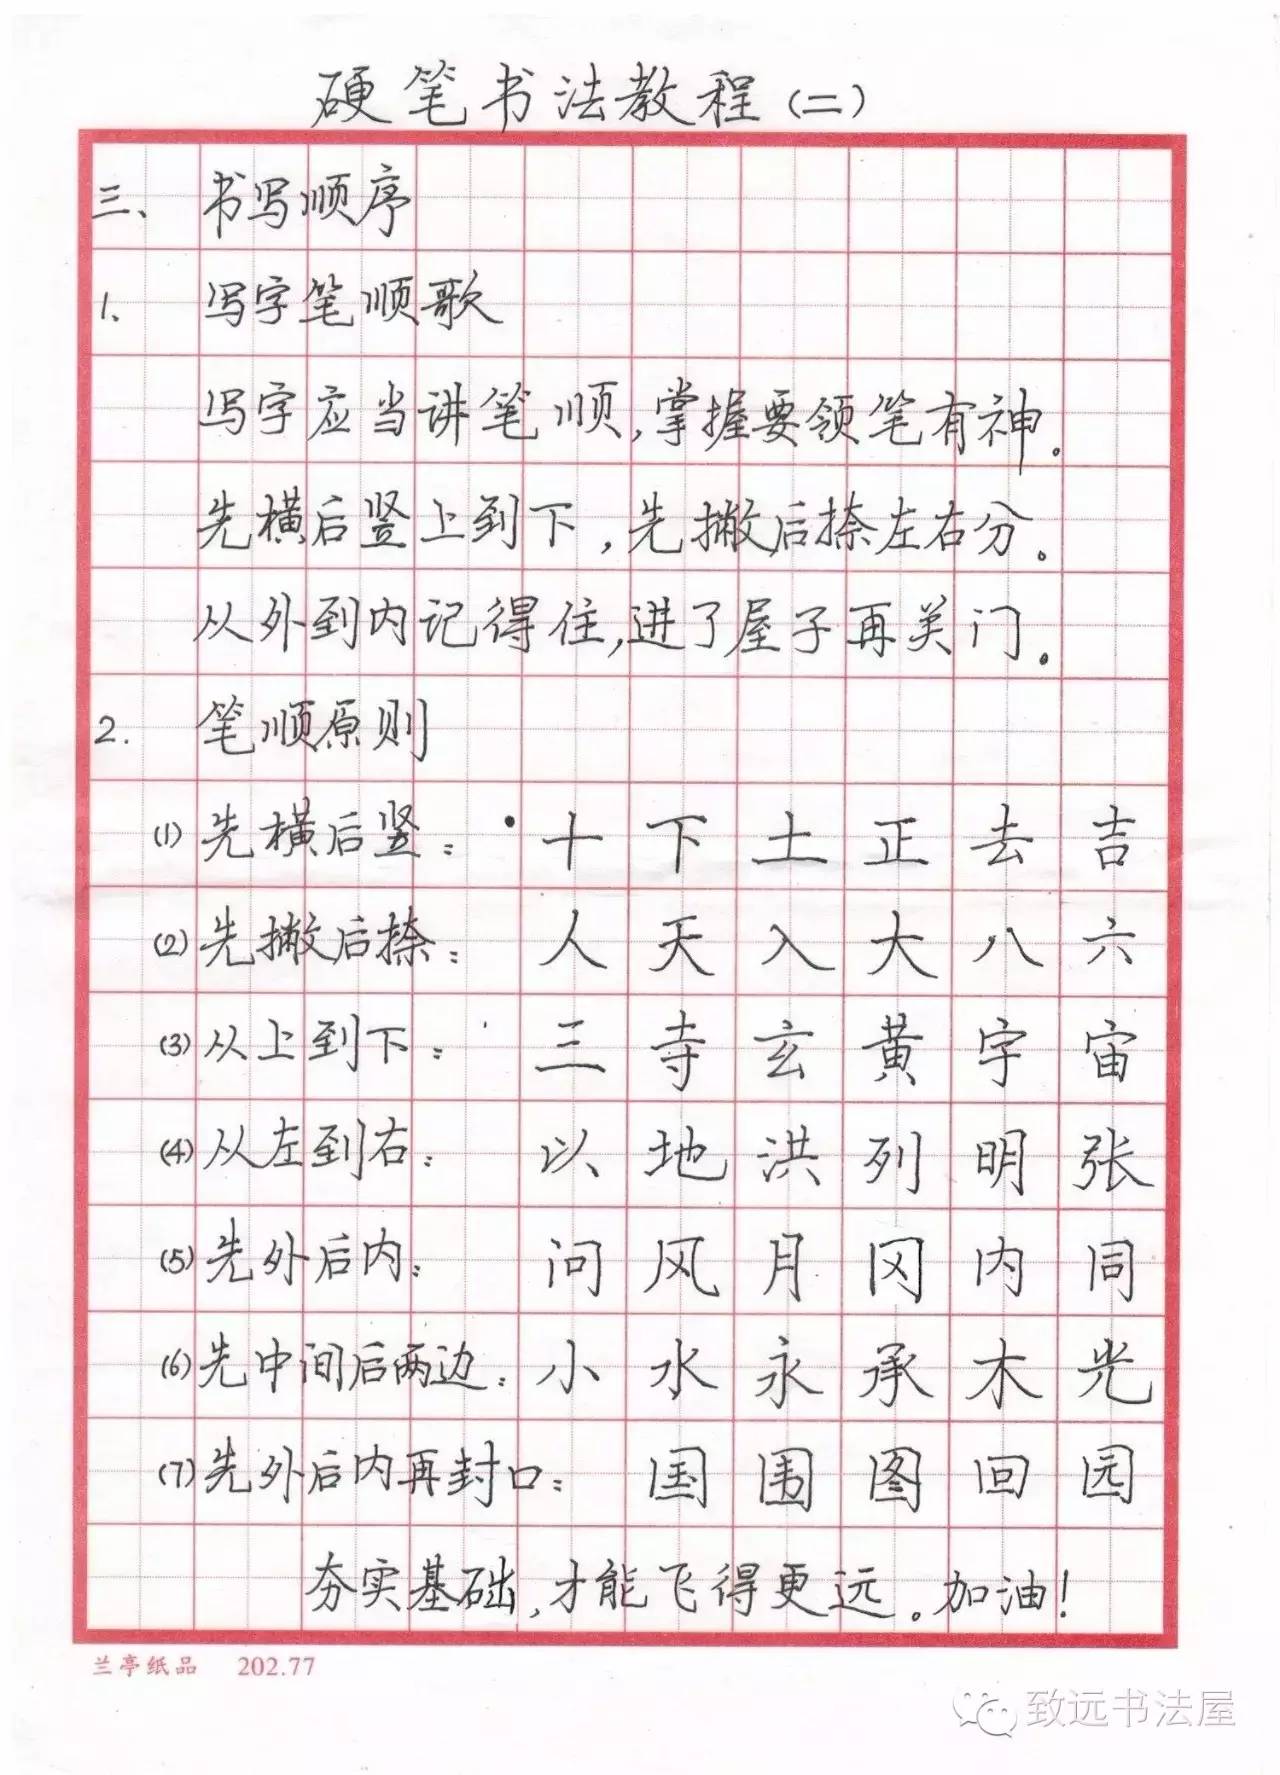 硬笔书法教程(二)
三、书写顺序
1、写字笔顺歌
写字应当讲笔顺,掌握要领笔有神。
先横后竖上到下,先撇后捺左右分。
从外到内记得住,进了屋子再关门。
2.笔顺原则
(1)先横后竖:十下土正去吉
(2)先撇后捺:人天入大八六
(3)从上到下:三寺玄黄字宙
(4)从左到右:以地洪列明张
(5)先外后内:问风月冈内同
(6)先中间后两边:小水永承木光
(7)先外后内再封口:国围图回园
夯实基础,才能飞得更远。加油!
兰亭纸品 202.77
致远书法屋